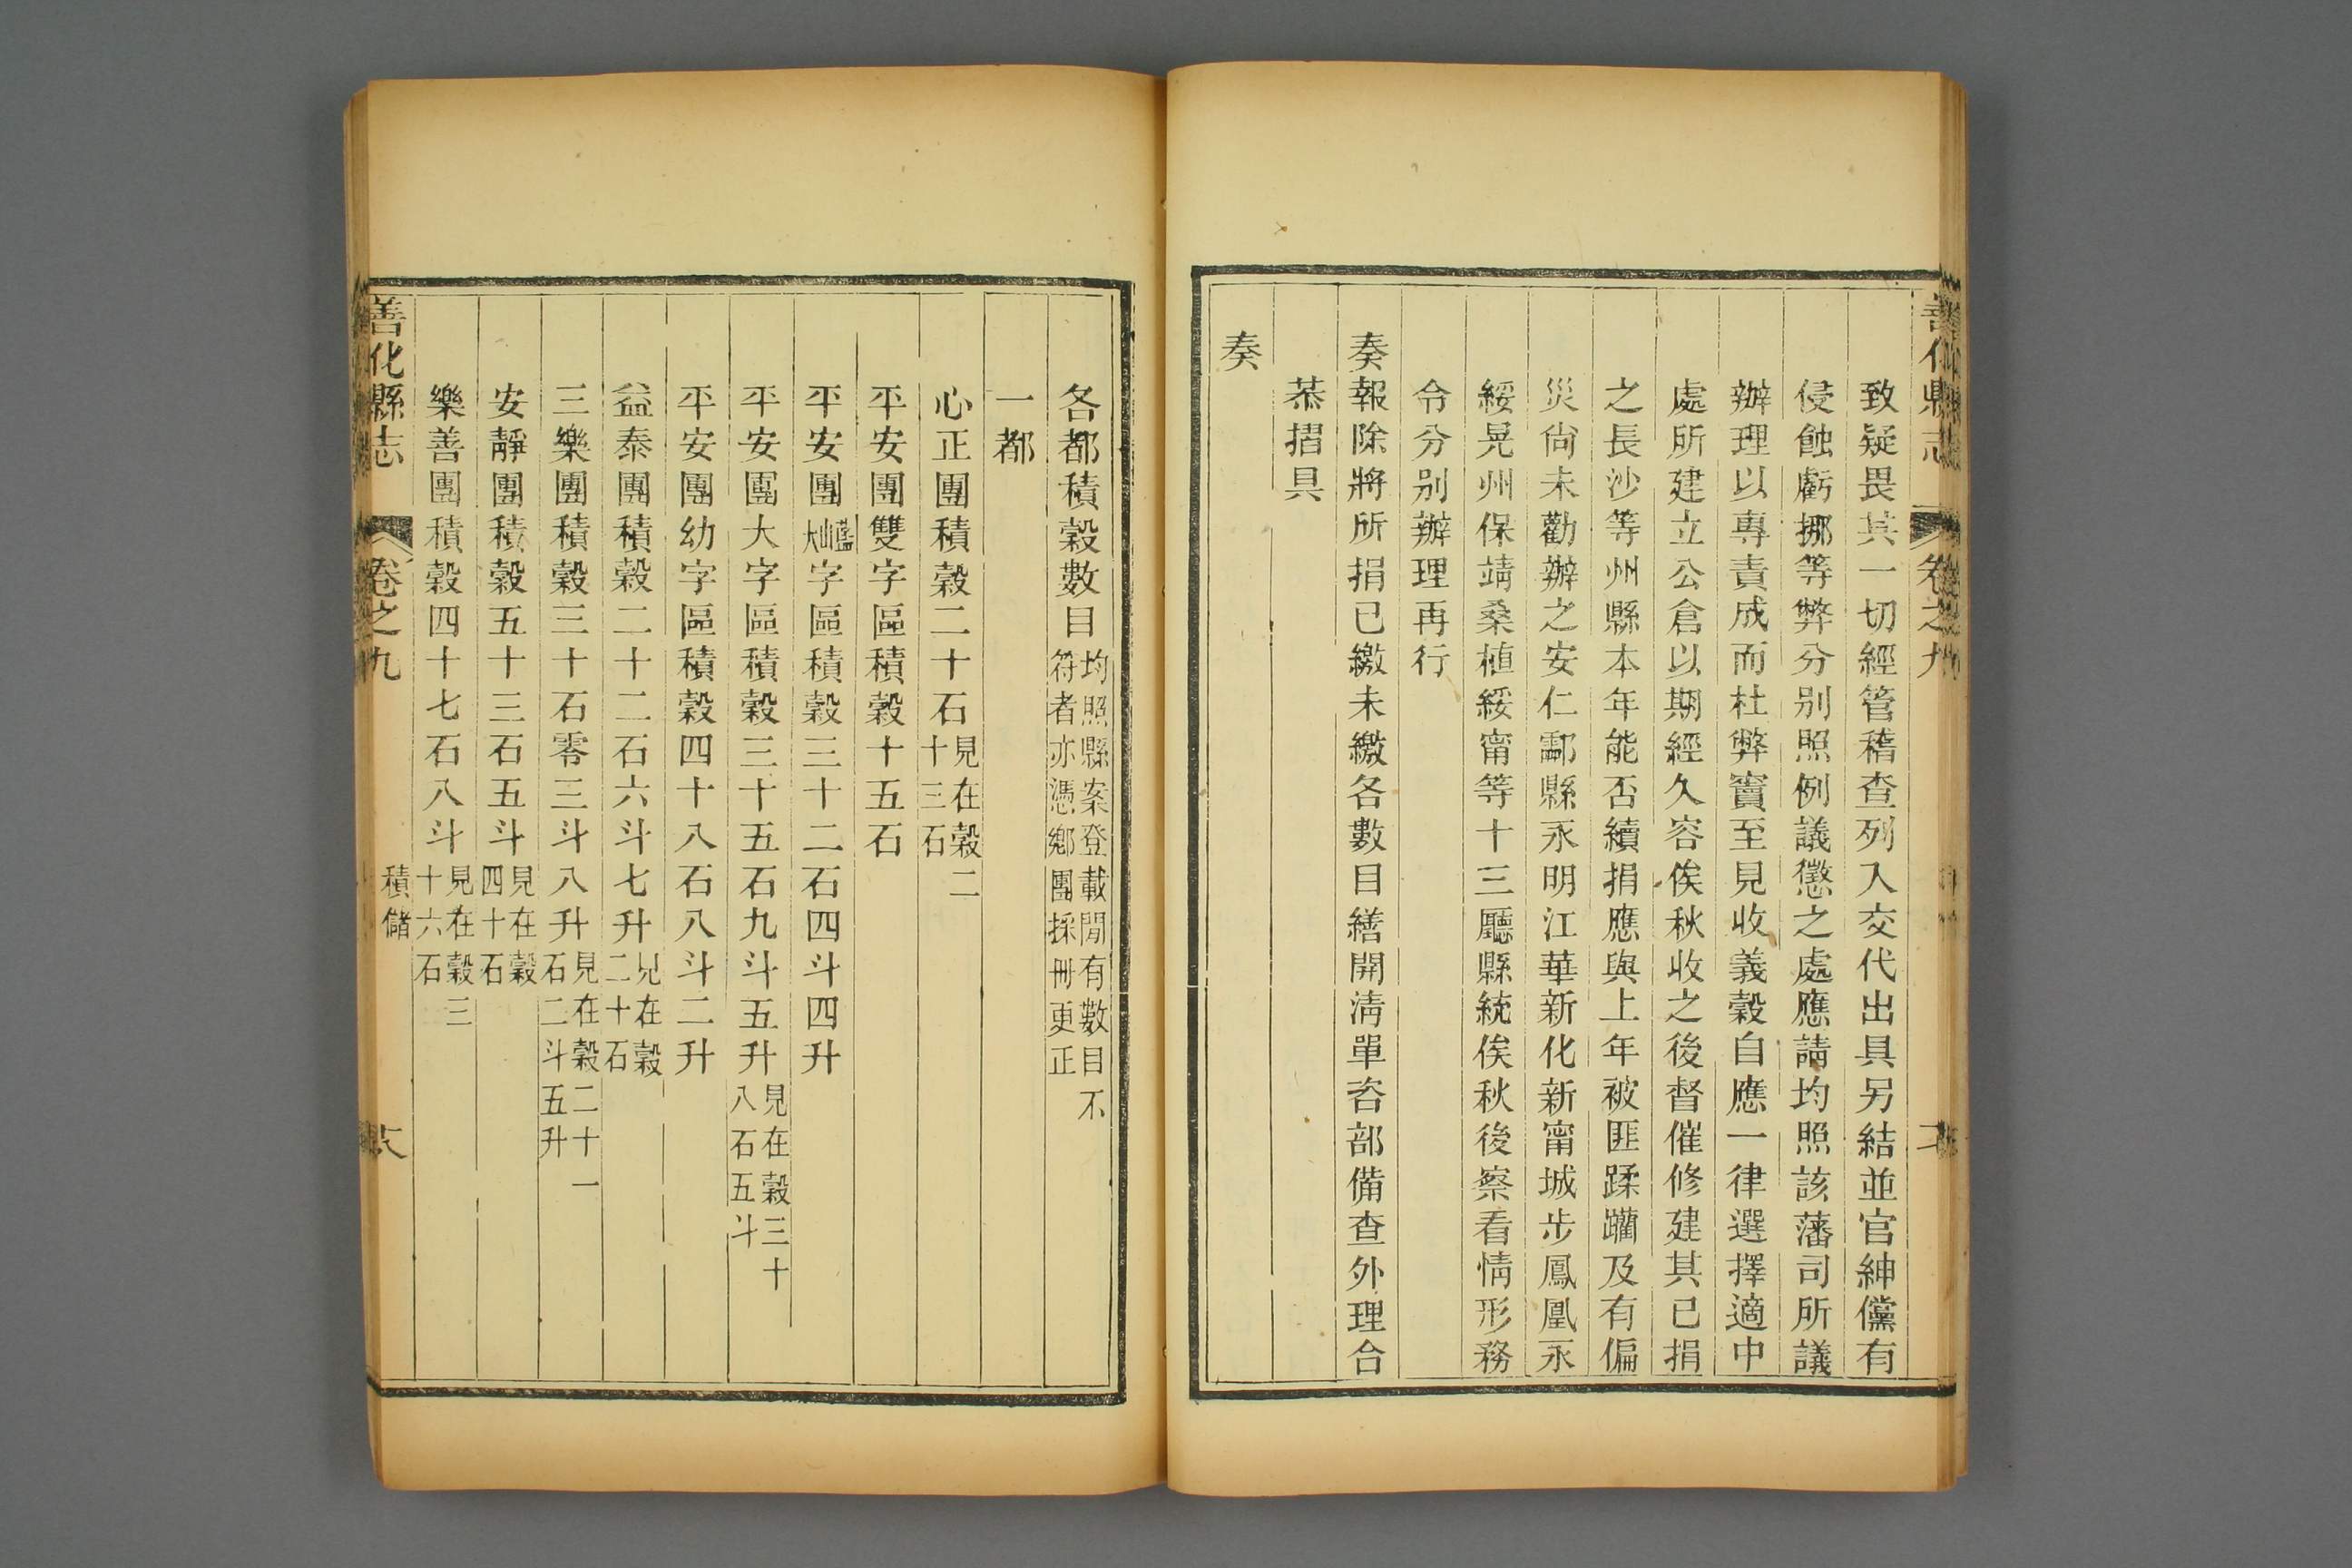 善化縣志 卷之九
致疑畏其一切經管稽查列入交代出具另結並官紳儻有
侵蝕虧挪等弊分別照例議懲之處應請均照該藩司所議
辦理以專責成而杜弊竇至見收義穀自應一律選擇適中
處所建立公倉以期經久容俟秋收之後督催修建其已捐
之長沙等州縣本年能否續捐應與上年被匪蹂躪及有偏
災尙未勸辦之安仁酃縣永明江華新化新甯城步鳳凰永
綏晃州保靖桑植綏甯等十三廳縣統俟秋後察看情形務
令分別辦理再行
奏報除將所捐已繳未繳各數目繕開淸單咨部備查外理合
恭摺具
奏
各都積穀數目均照縣案登載閒有數目不
符者亦憑鄉團採冊更正
一都
心正團積穀二十石見在穀二
十三石
平安團雙字區積穀十五石
平安團 字區積穀三十二石四斗四升
平安團大字區積穀三十五石九斗五升見在穀三十
八石五斗
平安團幼字區積穀四十八石八斗二升
益泰團積穀二十二石六斗七升見在穀
二十石
三樂團積穀三十石零三斗八升見在穀二十一
石二斗五升
安靜團積穀五十三石五斗見在穀
四十石
樂善團積穀四十七石八斗見在穀三
十六石
善化縣志 卷之九 積儲